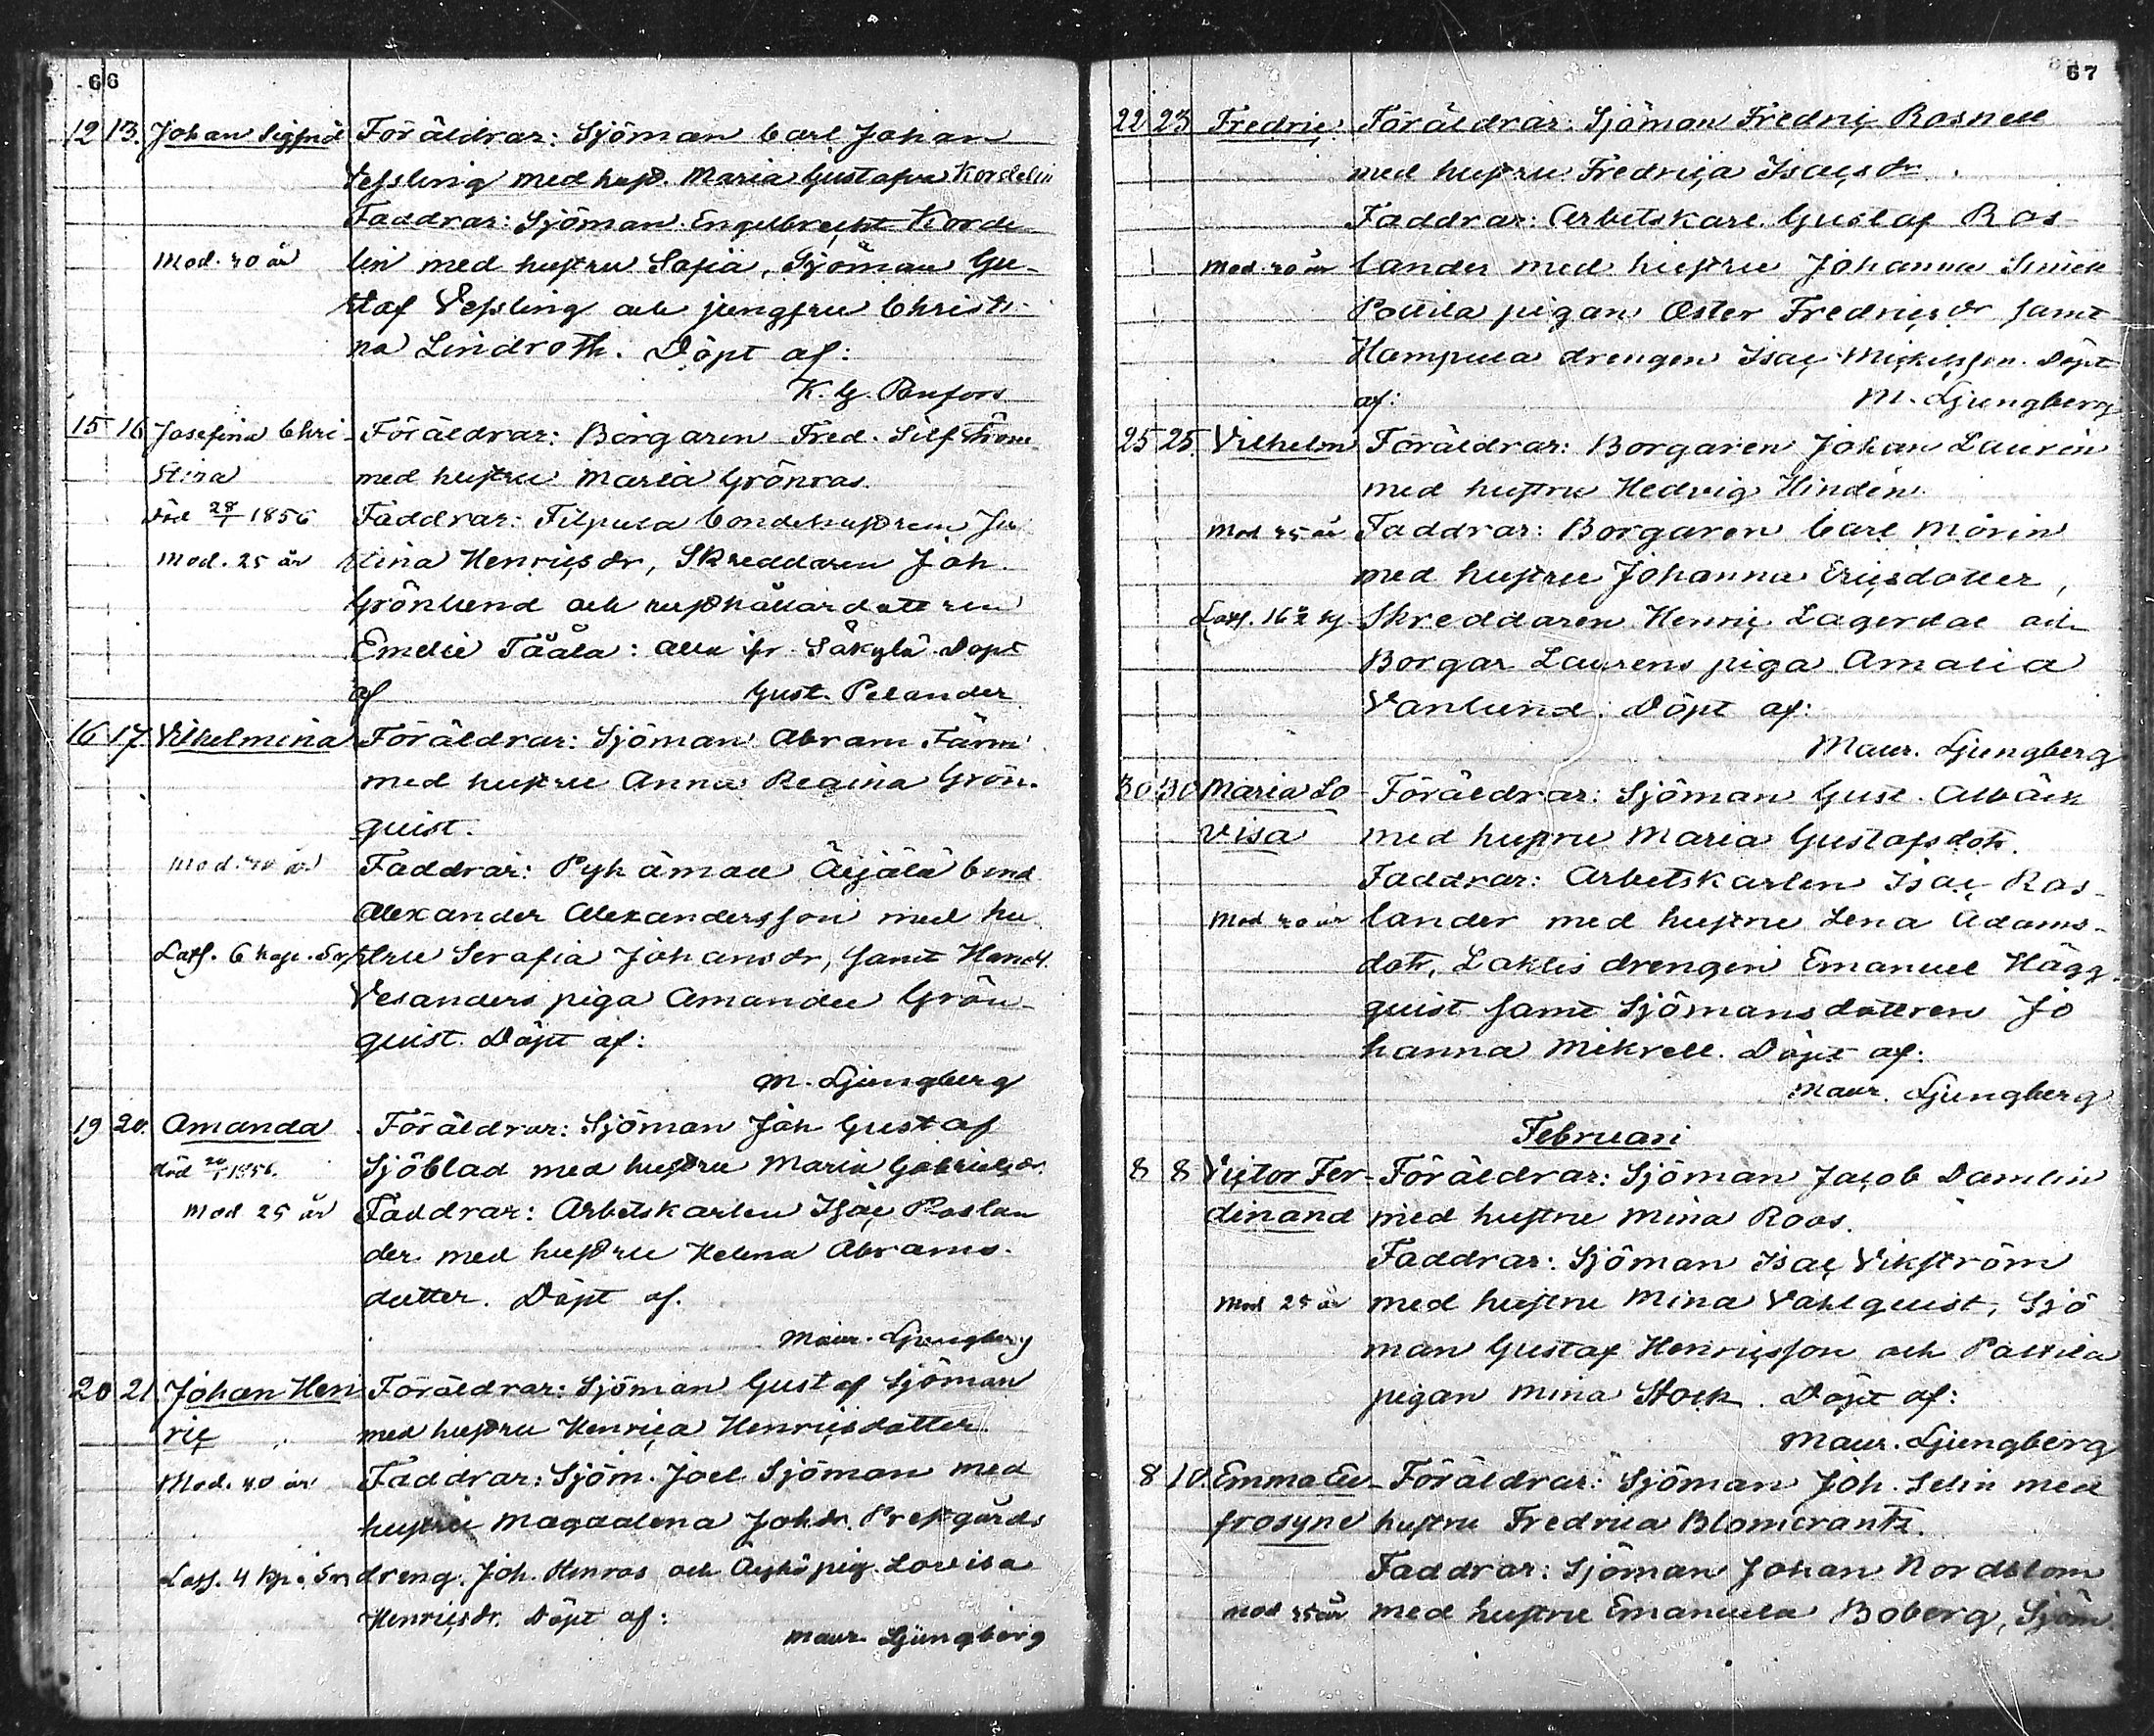 66
12 13. Johan Sigfrid Föräldrar: Sjöman Carl Johan
Vessling med hust. Maria Gustafva Kordelin
Faddrar: Sjöman Engelbrecht Korde
Mod. 40 år lin med hustru Sofia, Sjöman Gu-
staf Vessling och jungfru Christi-
na Lindroth. Döpt af:
K. G. Renfors
15 16 Josefina Chri- Föräldrar: Borgaren Fred. Silfström
stina med hustru Maria Grönroos
död 28/1 1856 Faddrar: Filpula bondehustrun Ju
Mod. 25 år stina Henricsdr, Skreddaren Joh.
Grönlund och rusthållardottren
Emelie Tåålå: alla ifr. Säkylä. Döpt
af Gust. Pelander
16 17. Vilhelmina Föräldrar: Sjöman Abram Färm
med hustru Anna Regina Grön-
quist.
Mod. 40 år Faddrar: Pyhämaa Äijälä bond
Alexander Alexandersson med hu
Lösf. 6 kop. Sr stru Serafia Johansdr, samt Handl.
Vesanders piga Amanda Grön-
quist. Döpt af:
M. Ljungberg
19 20. Amanda Föräldrar: Sjöman Joh Gustaf
död 20/1 1856. Sjöblad med hustru Maria Gabrielsdr.
Mod 25 år Faddrar: Arbetskarlen Isac Roslan
der med hustru Helena Abrams-
dotter. Döpt af.
Maur. Ljungberg
20 21. Johan Hen Föräldrar: Sjöman Gustaf Sjöman
ric med hustru Henrica Henricsdotter.
Mod. 40 år Faddrar: Sjöm. Joel Sjöman med
hustru Magdalena Johdr. Prestgårds
Lösf. 4 kp. Sr dreng. Joh. Henros och pig. Lovisa
Henricsdr. Döpt af:
Maur. Ljungberg
67
22 23 Fredric Föräldrar: Sjöman Fredric Rosnell
med hustru Fredrica Isacsdr
Faddrar: Arbetskarl. Gustaf Ros-
Mod. 40 år lander med hustru Johanna
Pottila pigan Ester Fredricsdr samt
Hampula drengen Isac Mickelsson. Döpt
af: M. Ljungberg
25 25. Vilhelm Föräldrar: Borgaren Johan Laurén
med hustru Hedvig Hindén.
Mod 45 år Faddrar: Borgaren Carl Morin
med hustru Johanna Ericsdotter,
Lösf. 16 Skreddaren Henric Lagerdal och
Borgar Laurens piga Amalia
Vanlund. Döpt af:
Maur. Ljungberg
30 30 Maria Lo- Föräldrar: Sjöman Gust. Albäck
visa med hustru Maria Gustafsdotr.
Faddrar: Arbetskarlen Isac Ros-
Mod 40 år lander med hustru Lena Adams-
dotr, Laklis drengen Emanuel Hägg-
quist samt Sjömansdottren Jo
hanna Mikrell. Döpt af:
Maur. Ljungberg
Februari
8 8 Victor Fer- Föräldrar: Sjöman Jacob Damlin
dinand med hustru Mina Roos.
Faddrar: Sjöman Isac Vikström
Mod 25 år med hustru Mina Vahlquist, Sjö
man Gustaf Henricsson och Pottila
pigan Mina Stock. Döpt af:
Maur. Ljungberg
8 10. Emma Eu- Föräldrar: Sjöman Joh. Selin med
frosyne hustru Fredrica Blomcrantz.
Faddrar: Sjöman Johan Nordblom
Mod 35 år med hustru Emanuela Boberg, Sjöm.